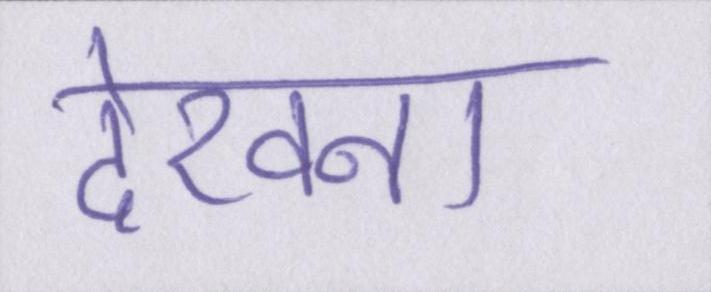 देखना